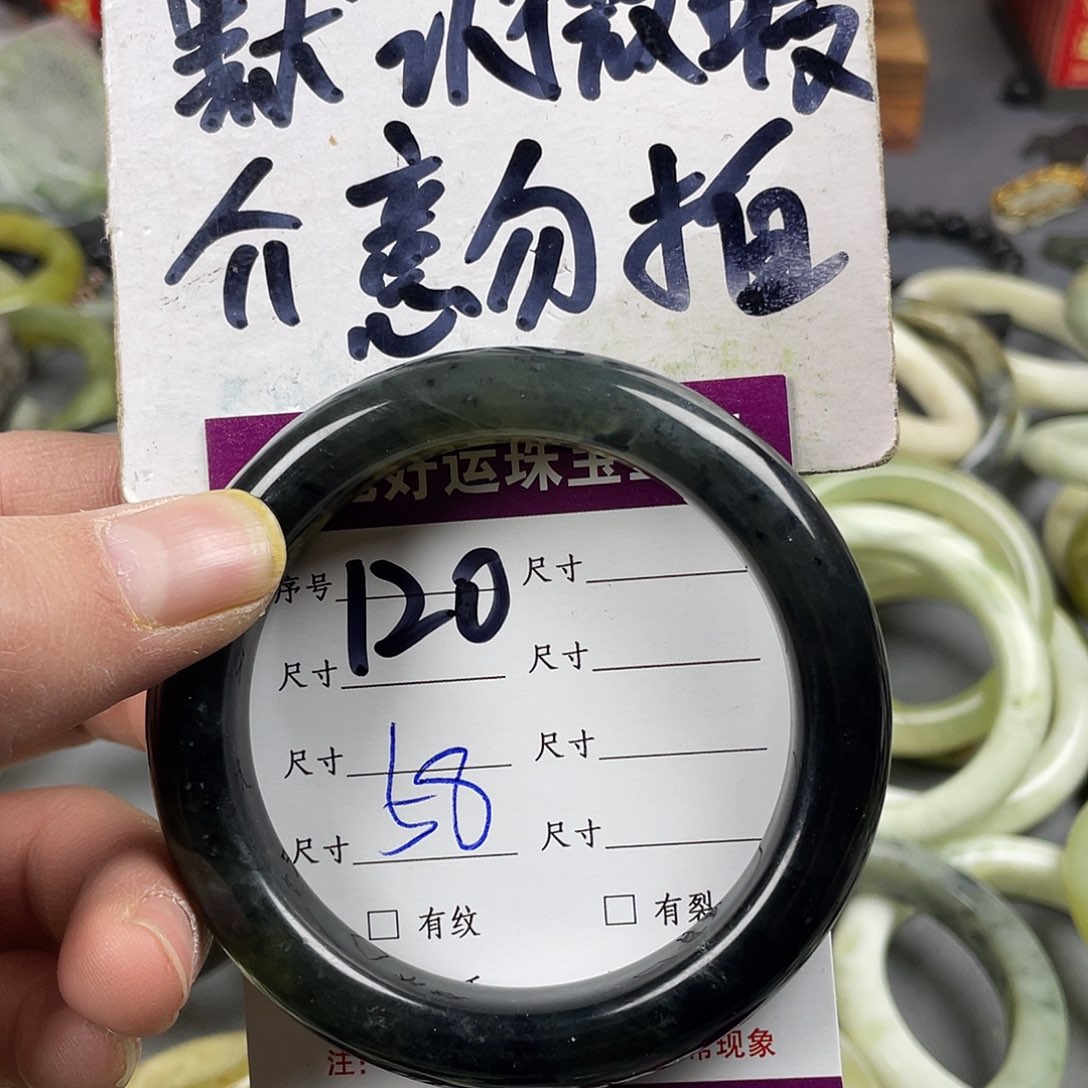 默认微瑕
介意勿拍
好运珠宝
序号 120 尺寸
尺寸 尺寸
尺寸 58 尺寸
尺寸 尺寸
□ 有纹 □ 有裂
注: 常现象